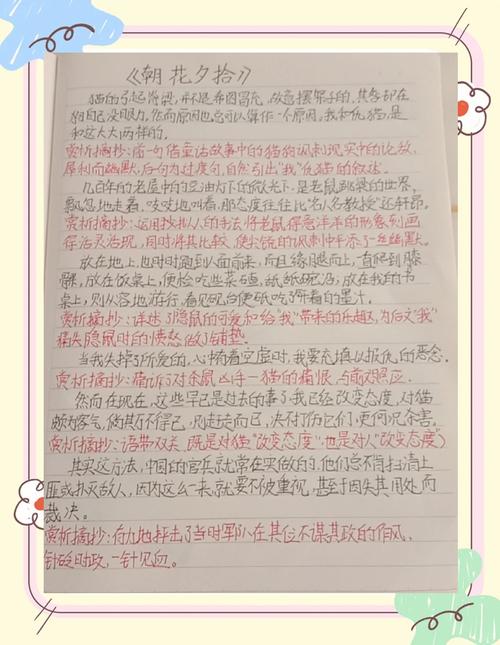 《朝花夕拾》
猫的弓起脊梁,并不是希图冒充,故意摆架子的,其咎却在
狗自己没眼力,然而原因也总可以算作一个原因,我和仇猫,是
和这大大两样的。
赏析摘抄:前一句借童话故事中的猫狗讽刺现实中的论敌,
犀利而幽默,后句为过度句,自然引出"我"仇猫的叙述。
几百年的老屋中的豆油灯下的微光下,是老鼠跳梁的世界,
飘忽地走着,吱吱地叫着,那态度往往比"名人名教授"还轩昂。
赏析摘抄:运用拟人的手法将老鼠得意洋洋的形象刻画
得活灵活现,同时将其比较,使尖锐的讽刺中平添了一丝幽默。
放在地上,也时时跑到人面前来,而且缘腿而上,一直爬到膝
髁,放在饭桌上,便捡吃些菜渣,舐舐碗沿;放在我的书
桌上,则从容地游行,看见砚台便舐吃了研着的墨汁。
赏析摘抄:详述了隐鼠的可爱和给"我"带来的乐趣,为后文"我"
痛失隐鼠时的愤怒做了铺垫。
当我失掉了所爱的,心中有着空虚时,我要充填以报仇的恶念。
赏析摘抄:痛诉了对杀鼠凶手—猫的痛恨,与前文照应。
然而在现在,这些早已是过去的事了,我已经改变态度,对猫
颇为客气,倘其万不得已,则赶走而已,决不打伤它们,更何况杀害。
赏析摘抄:语带双关,既是对猫"改变态度",也是对人"改变态度"
其实这方法,中国的官兵就常在实做的,他们总不肯扫清土
匪或扑灭敌人,因为这么一来,就要不被重视,甚至于因失其用处而
裁决。
赏析摘抄:有力地抨击了当时军队在其位不谋其政的作风,
针砭时政,一针见血。